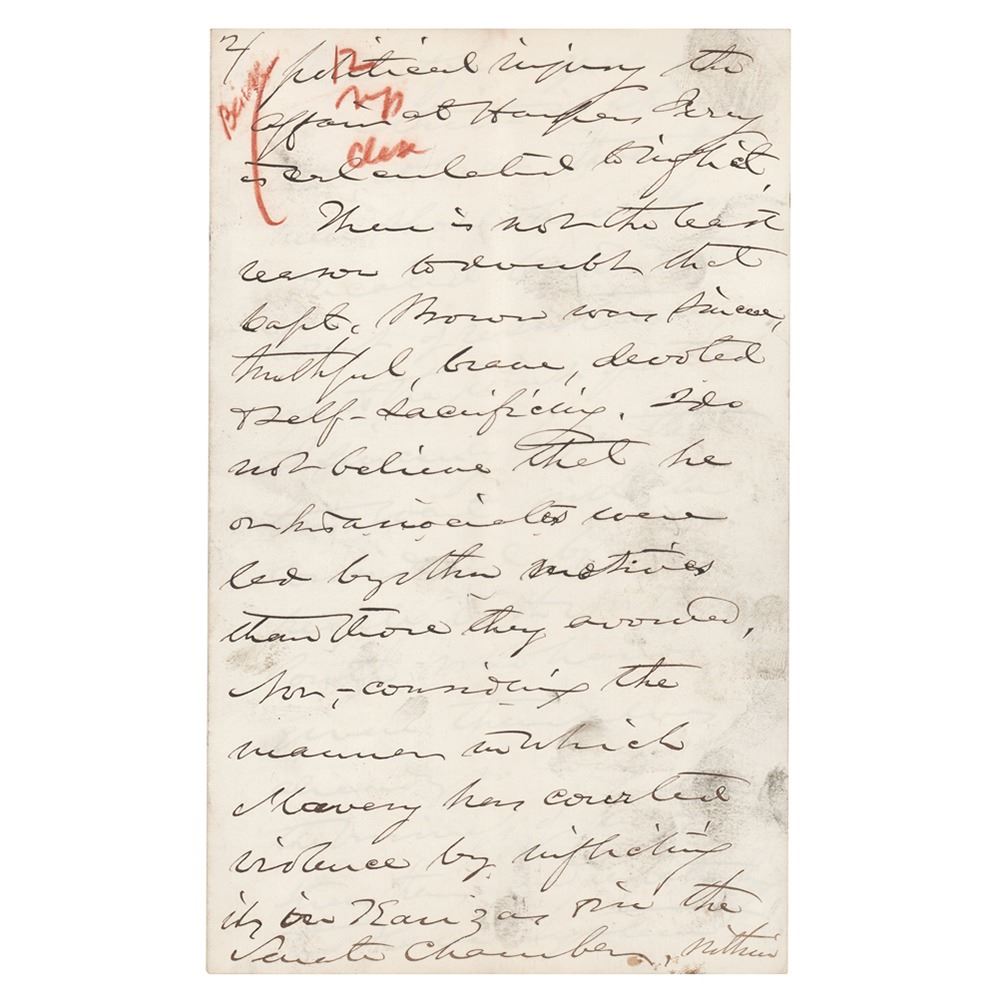 2/
political injury the
affair at Harpers Ferry
is calculated to inflict.
There is not the least
reason to doubt that
Capt. Brown was sincere,
truthful, brave, devoted
& self-sacrificing. I do
not believe that he
or his associates were
led by other motives
than those they avowed,
Nor, considering the
manner in which
Slavery has courted
violence by inflicting
it, in Kanzas & in the
Senate Chamber, within